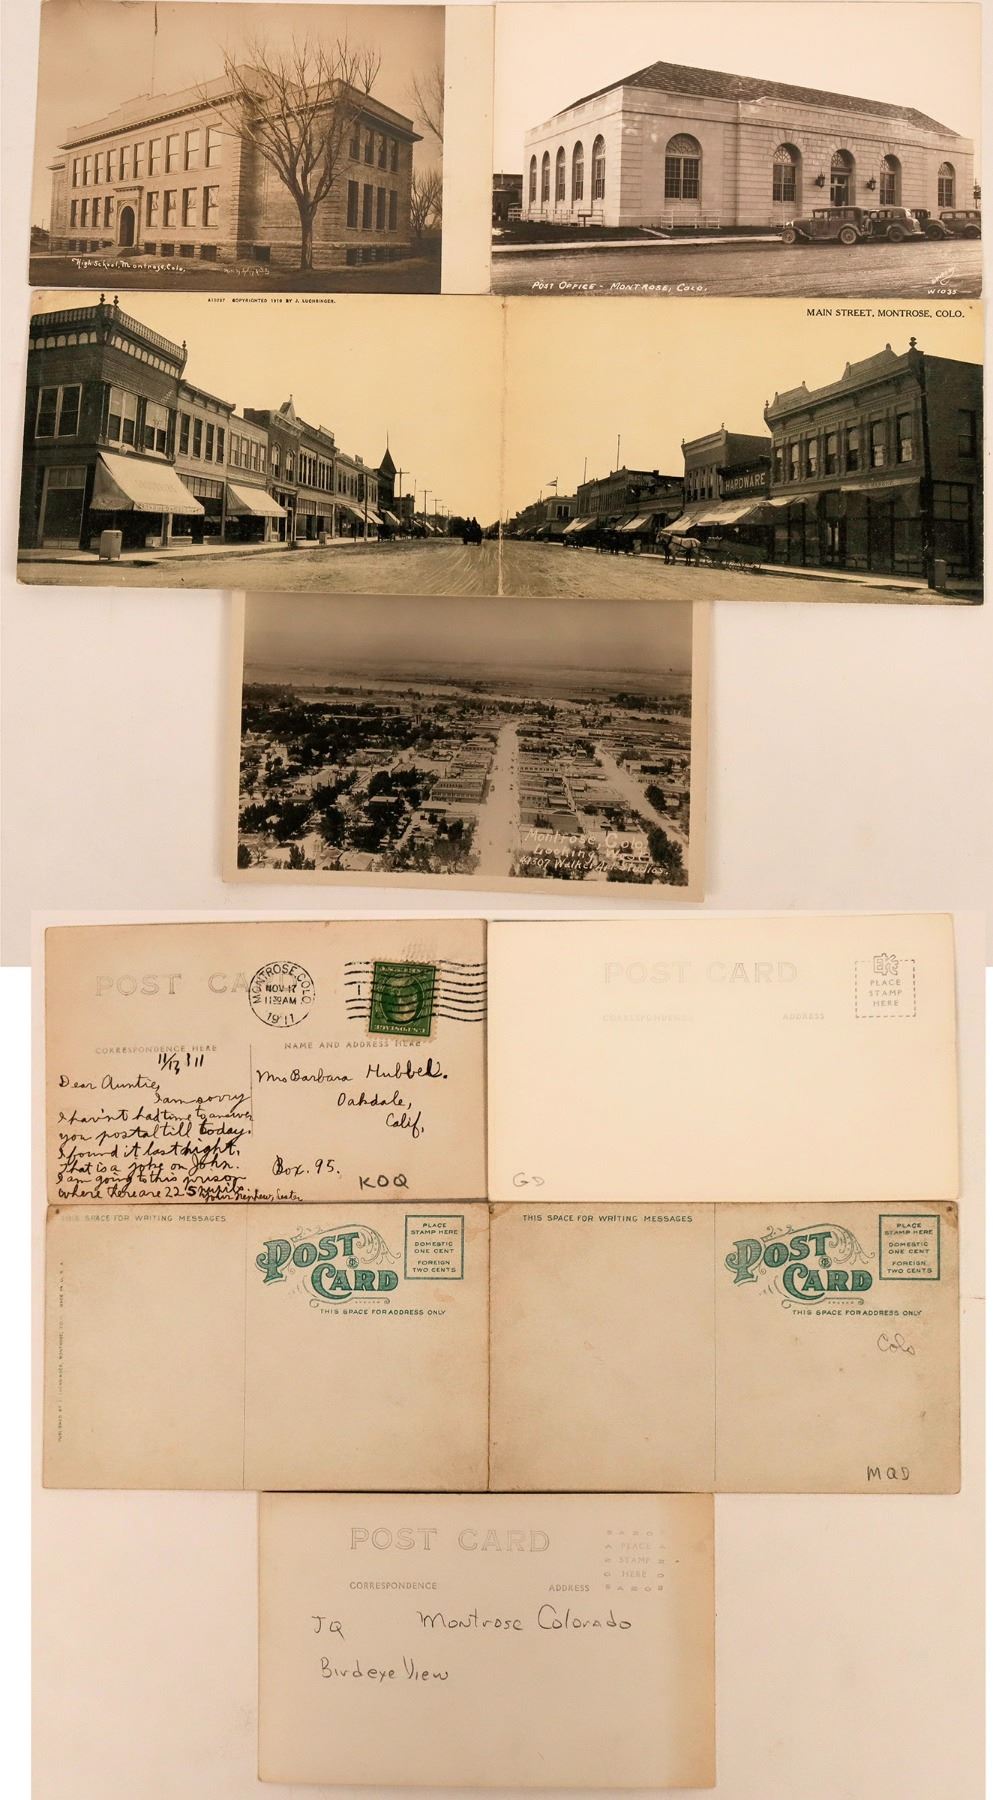 High School, Montrose, Colo.
POST OFFICE - MONTROSE, COLO.
W1035
A13237 COPYRIGHTED 1910 BY J. LUCHSINGER.
MAIN STREET, MONTROSE, COLO.
HARDWARE
Montrose, Colo.
Looking West
#1307 Walker Art Studios.
POST CARD
MONTROSE, COLO.
NOV 17
11 30 AM
1911
U.S. POSTAGE
CORRESPONDENCE HERE
NAME AND ADDRESS HERE
11/13 111
Dear Auntie,
I am sorry
I hav'nt had time to answer
you postal till today.
I found it last night.
That is a joke on John.
I am going to this prison
where there are 225 pupils.
Your Nephew, Lester
Mrs Barbara Hubbell.
Oakdale,
Calif,
Box. 95.
KOQ
POST CARD
EKC
PLACE
STAMP
HERE
CORRESPONDENCE
ADDRESS
GD
THIS SPACE FOR WRITING MESSAGES
POST CARD
PLACE
STAMP HERE
DOMESTIC
ONE CENT
FOREIGN
TWO CENTS
THIS SPACE FOR ADDRESS ONLY
PUBLISHED BY J. LUCHSINGER, MONTROSE, COLO. MADE IN U.S.A.
THIS SPACE FOR WRITING MESSAGES
POST CARD
PLACE
STAMP HERE
DOMESTIC
ONE CENT
FOREIGN
TWO CENTS
THIS SPACE FOR ADDRESS ONLY
Colo
MQD
POST CARD
PLACE
STAMP
HERE
CORRESPONDENCE
ADDRESS
JQ
Montrose Colorado
Birdeye View